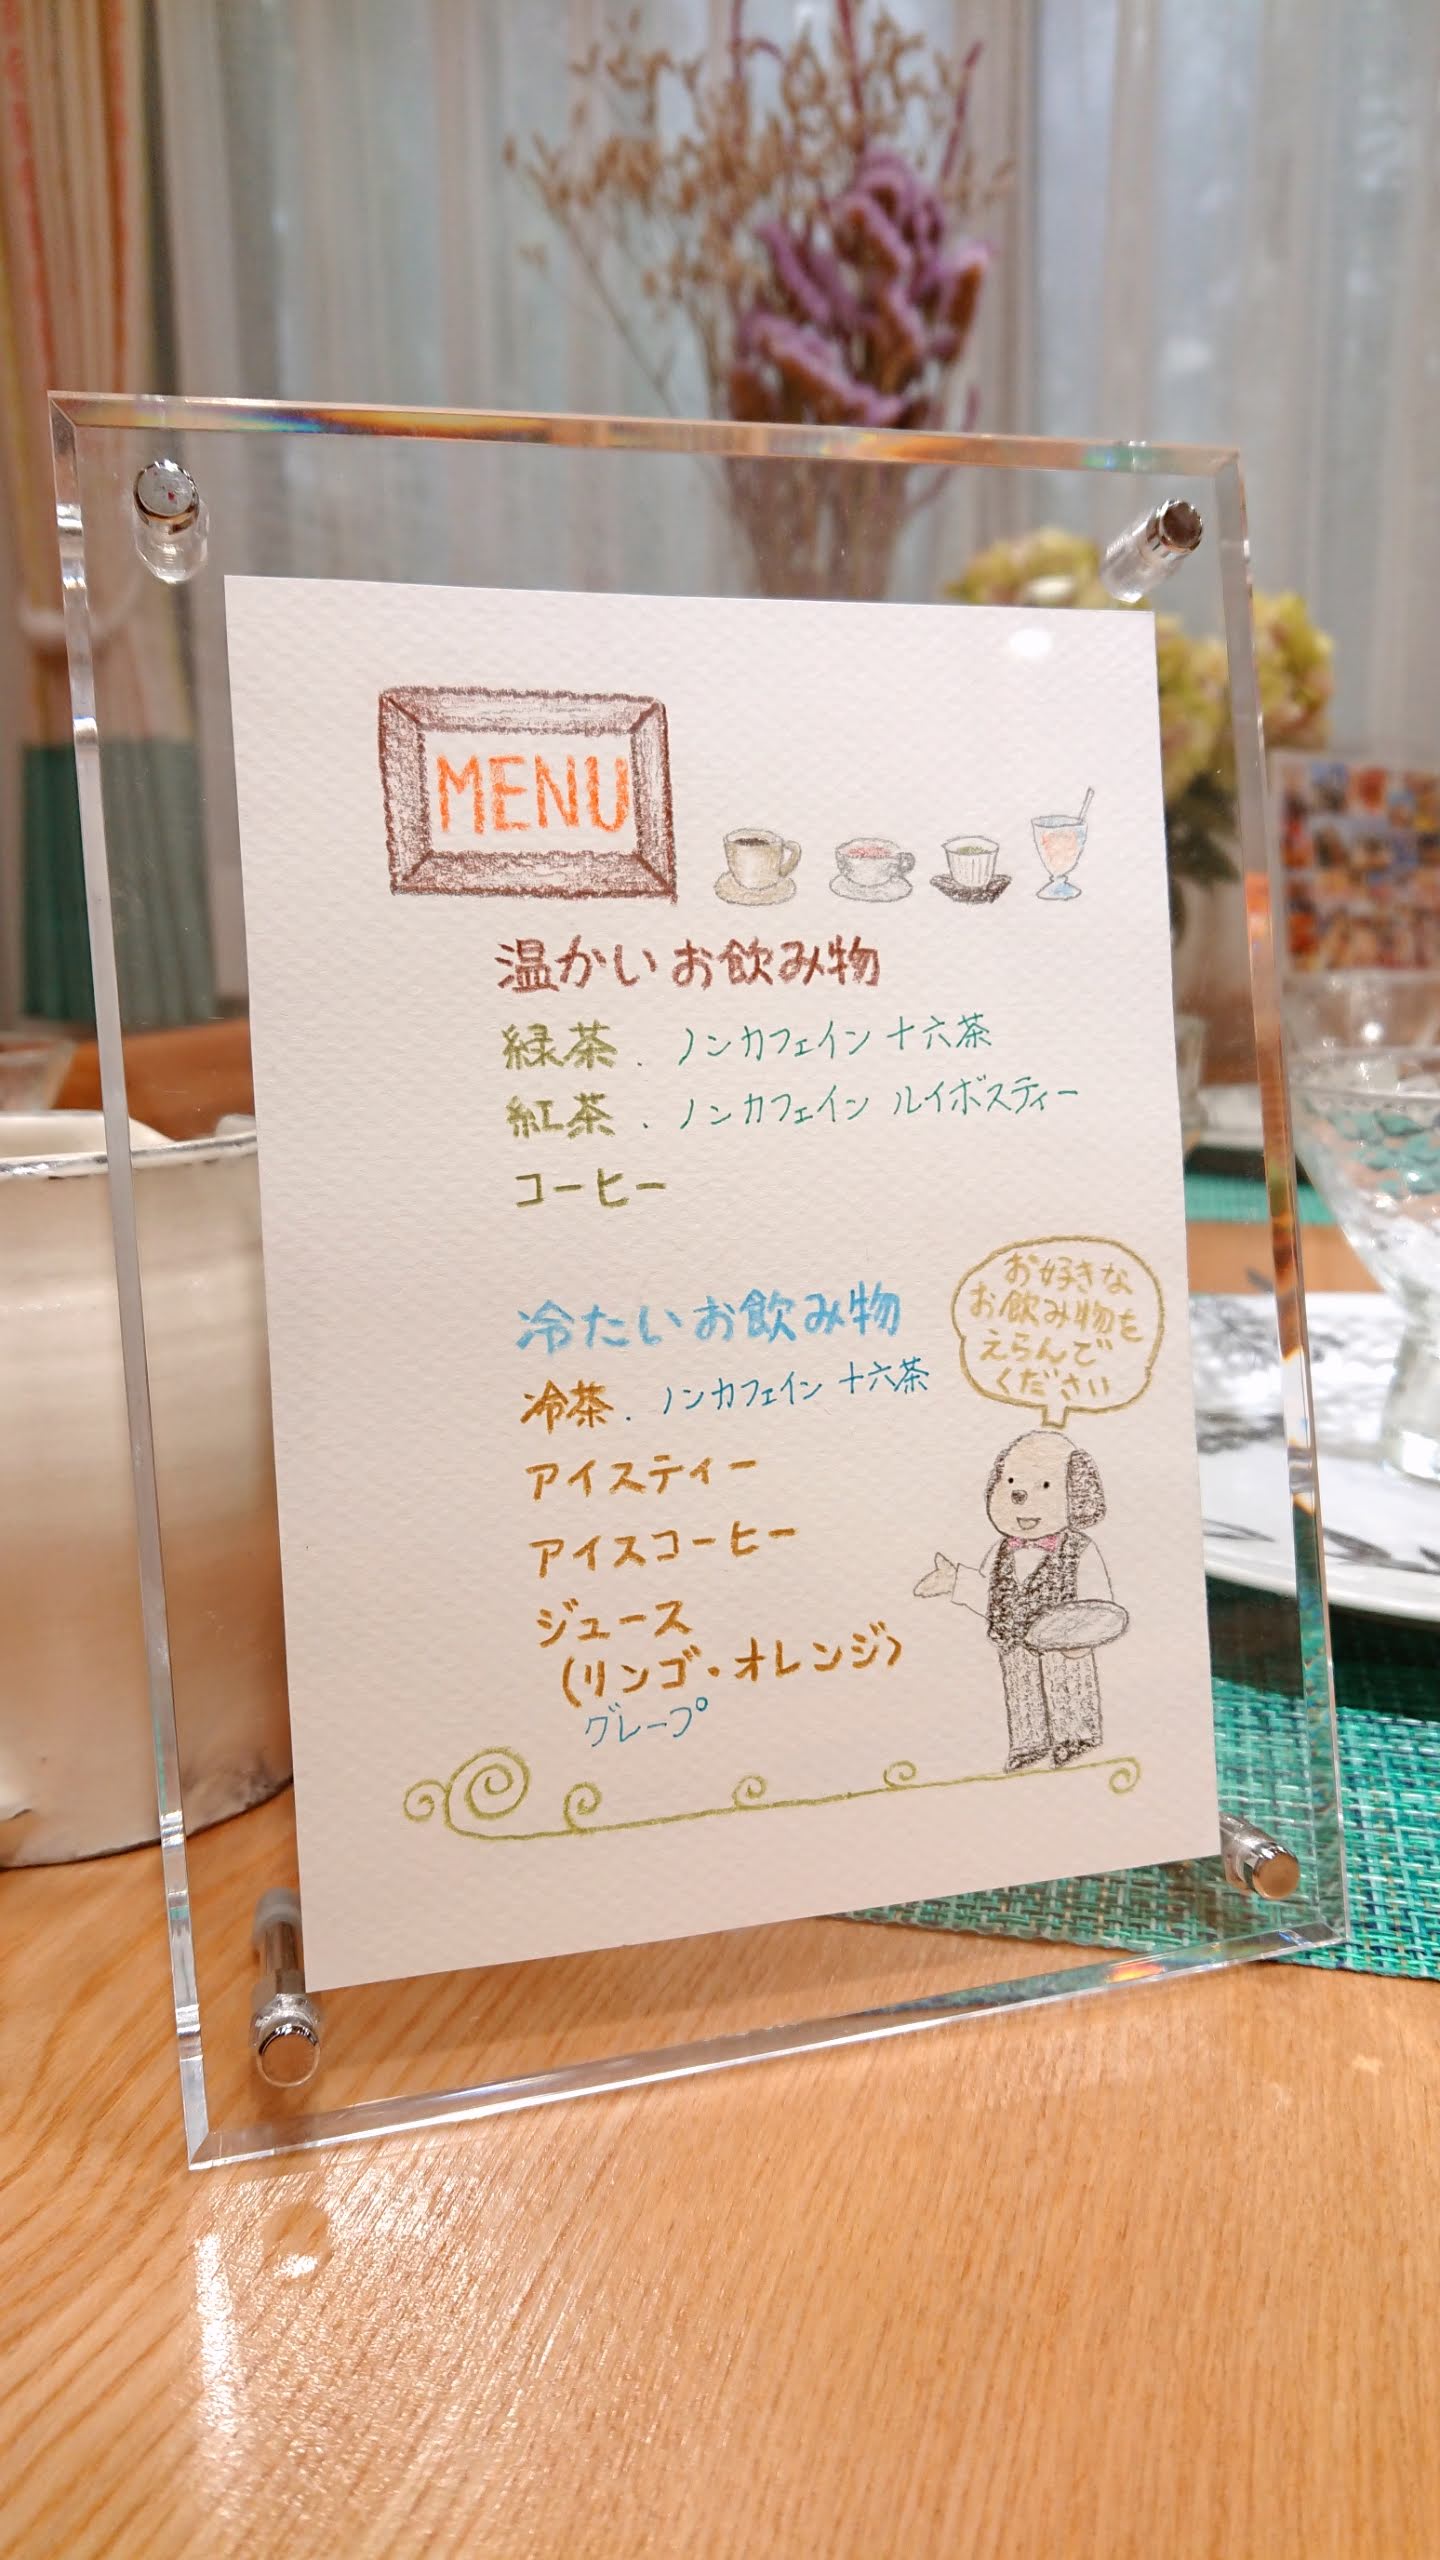 MENU
温かいお飲み物
緑茶．ノンカフェイン十六茶
紅茶．ノンカフェイン ルイボスティー
コーヒー
冷たいお飲み物
冷茶．ノンカフェイン十六茶
アイスティー
アイスコーヒー
ジュース
(リンゴ・オレンジ)
グレープ
お好きな
お飲み物を
えらんで
ください